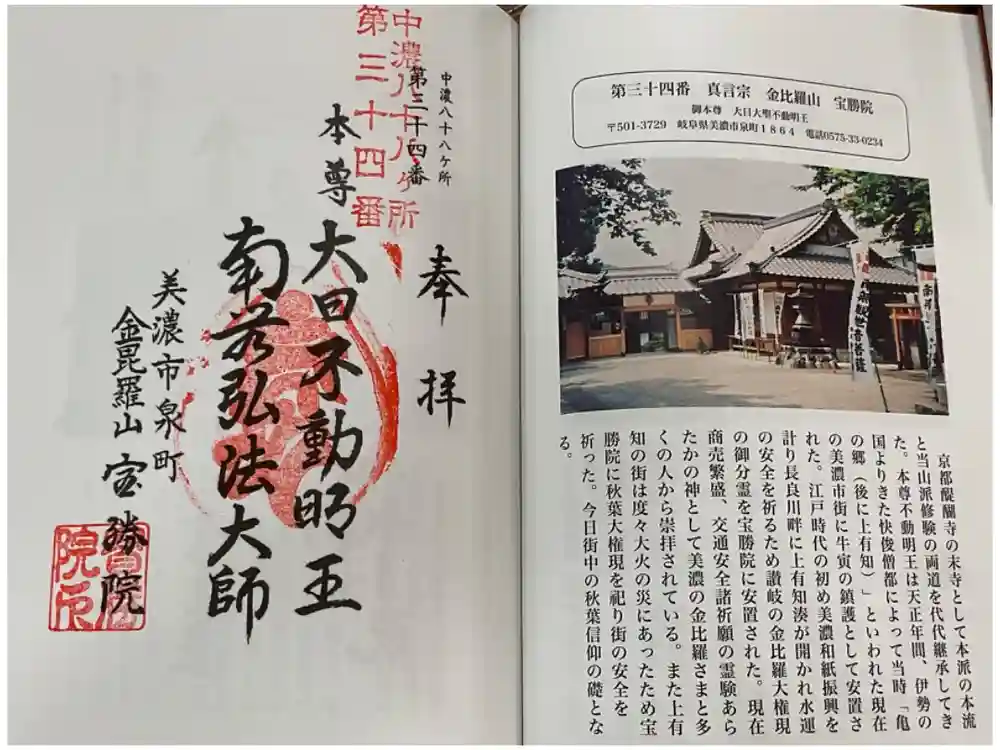 中濃八十八ヶ所
第三十四番
中濃八十八ヶ所
第三十四番
奉拝
本尊
大日不動明王
南無弘法大師
美濃市泉町
金毘羅山 宝勝院
第三十四番 真言宗 金比羅山 宝勝院
御本尊 大日大聖不動明王
〒501-3729 岐阜県美濃市泉町1864 電話0575-33-0234
南無観世音菩薩
京都醍醐寺の末寺として本派の本流
と当山派修験の両道を代代継承してき
た。本尊不動明王は天正年間、伊勢の
国よりきた快俊僧都によって当時「亀
の郷(後に上有知)」といわれた現在
の美濃市街に牛寅の鎮護として安置さ
れた。江戸時代の初め美濃和紙振興を
計り長良川畔に上有知湊が開かれ水運
の安全を祈るため讃岐の金比羅大権現
の御分霊を宝勝院に安置された。現在
商売繁盛、交通安全諸祈願の霊験あら
たかの神として美濃の金比羅さまと多
くの人から崇拝されている。また上有
知の街は度々大火の災にあったため宝
勝院に秋葉大権現を祀り街の安全を
祈った。今日街中の秋葉信仰の礎とな
る。